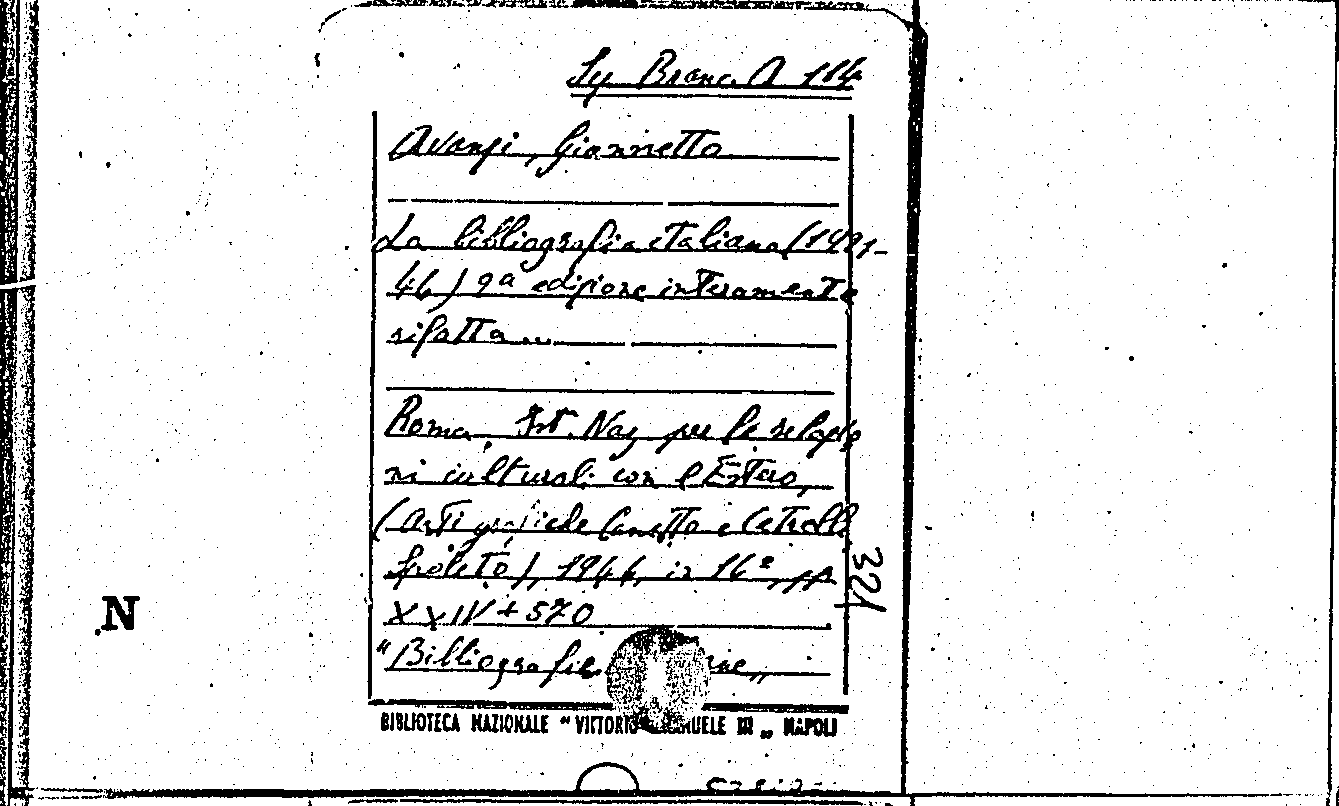 Sy Branc. A 114
Avanzi, Giannetto
La bibliografia italiana (1921-
46) 2ª edizione interamente
rifatta...
Roma, Ist. Naz per le relazio
ni culturali con l'Estero,
(Arti grafiche e
Spoleto), 1946, in 16º, pp.
XXIV + 570
321
"Bibliografie
N
BIBLIOTECA NAZIONALE "VITTORIO EMANUELE III" NAPOLI